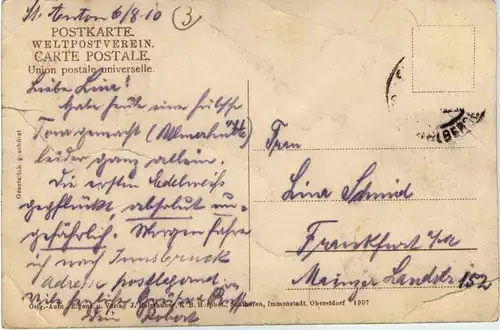 St. Anton 6/8 10
3
POSTKARTE.
WELTPOSTVEREIN.
CARTE POSTALE.
Union postale universelle.
Liebe Lina!
Habe heute eine hübsche
Tour gemacht (Ulmerhütte)
leider ganz allein.
Die ersten Edelweiß
gepflückt, absolut un-
gefährlich. Morgen fahre
ich nach Innsbruck
Adresse postlagernd
Viele herzliche Grüße &
Dein Robert
Frau
Lina Schmid
Frankfurt a/M
Mainzer Landstr 152
Gesetzlich geschützt
Orig.-Aufn., Eigent. u. Verlag J. Heimhuber, K. B. Hofphot., Sonthofen, Immenstadt, Oberstdorf 1907